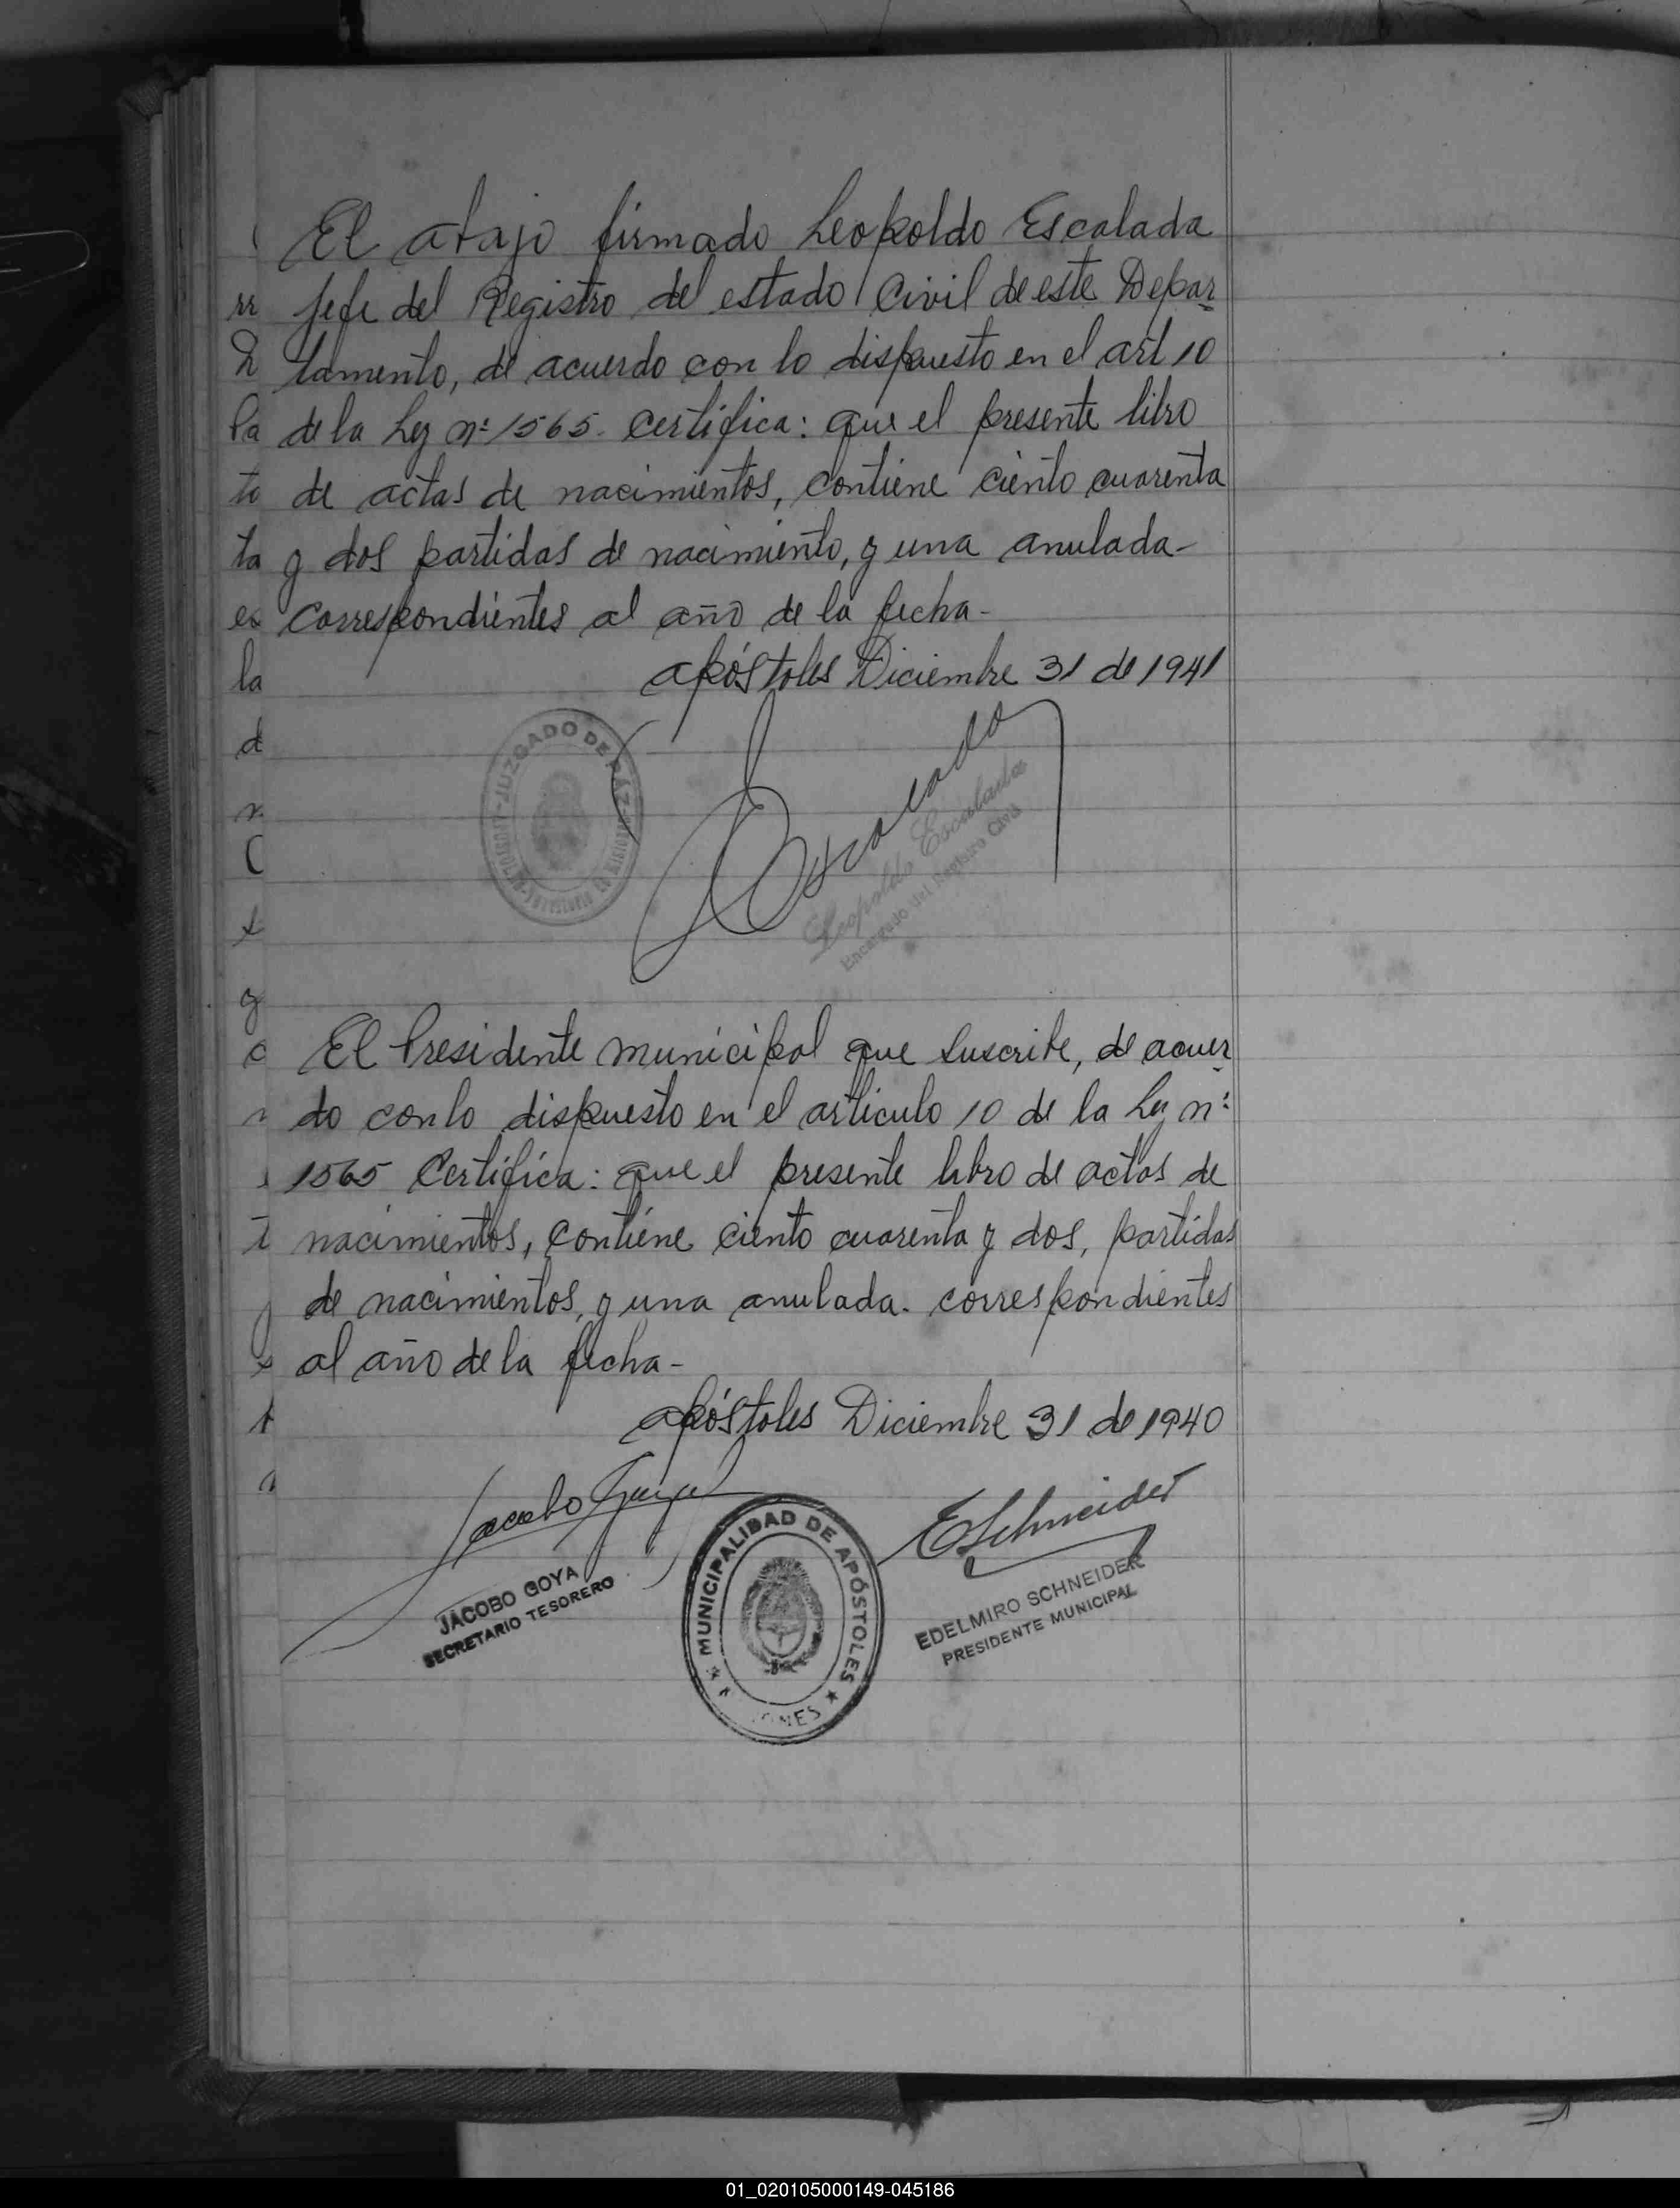 El abajo firmado Leopoldo Escalada
Jefe del Registro del estado Civil de este Depar
tamento, de acuerdo con lo dispuesto en el art 10
de la Ley nº 1565. Certifica: que el presente libro
de actas de nacimientos, contiene ciento cuarenta
y dos partidas de nacimiento, y una anulada-
correspondientes al año de la fecha-
apóstoles Diciembre 31 de 1941
JUZGADO DE PAZ
Escalada
Leopoldo Escalada
Encargado del Registro Civil
El Presidente municipal que suscribe, de acuer
do con lo dispuesto en el articulo 10 de la Ley nº
1565 Certifica: que el presente libro de actas de
nacimientos, contiene ciento cuarenta y dos, partidas
de nacimientos, y una anulada. correspondientes
al año de la fecha-
apóstoles Diciembre 31 de 1940
Jacobo Goya
ESchneider
JACOBO GOYA
SECRETARIO TESORERO
MUNICIPALIDAD DE APÓSTOLES
EDELMIRO SCHNEIDER
PRESIDENTE MUNICIPAL
01_020105000149-045186